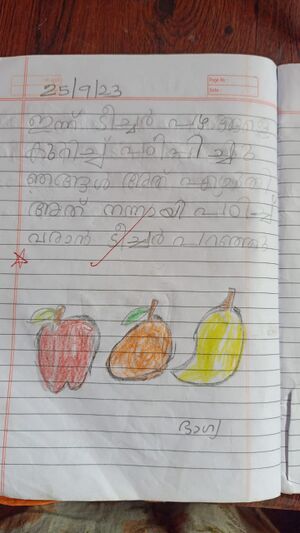 25/9/23
Page No
Date
ഇന്ന് ടീച്ചർ പഴങ്ങളെ
കുറിച്ച് പഠിപ്പിച്ചു
ഞങ്ങൾ അത് എഴുതി
അത് നന്നായി പഠിച്ച്
വരാൻ ടീച്ചർ പറഞ്ഞു